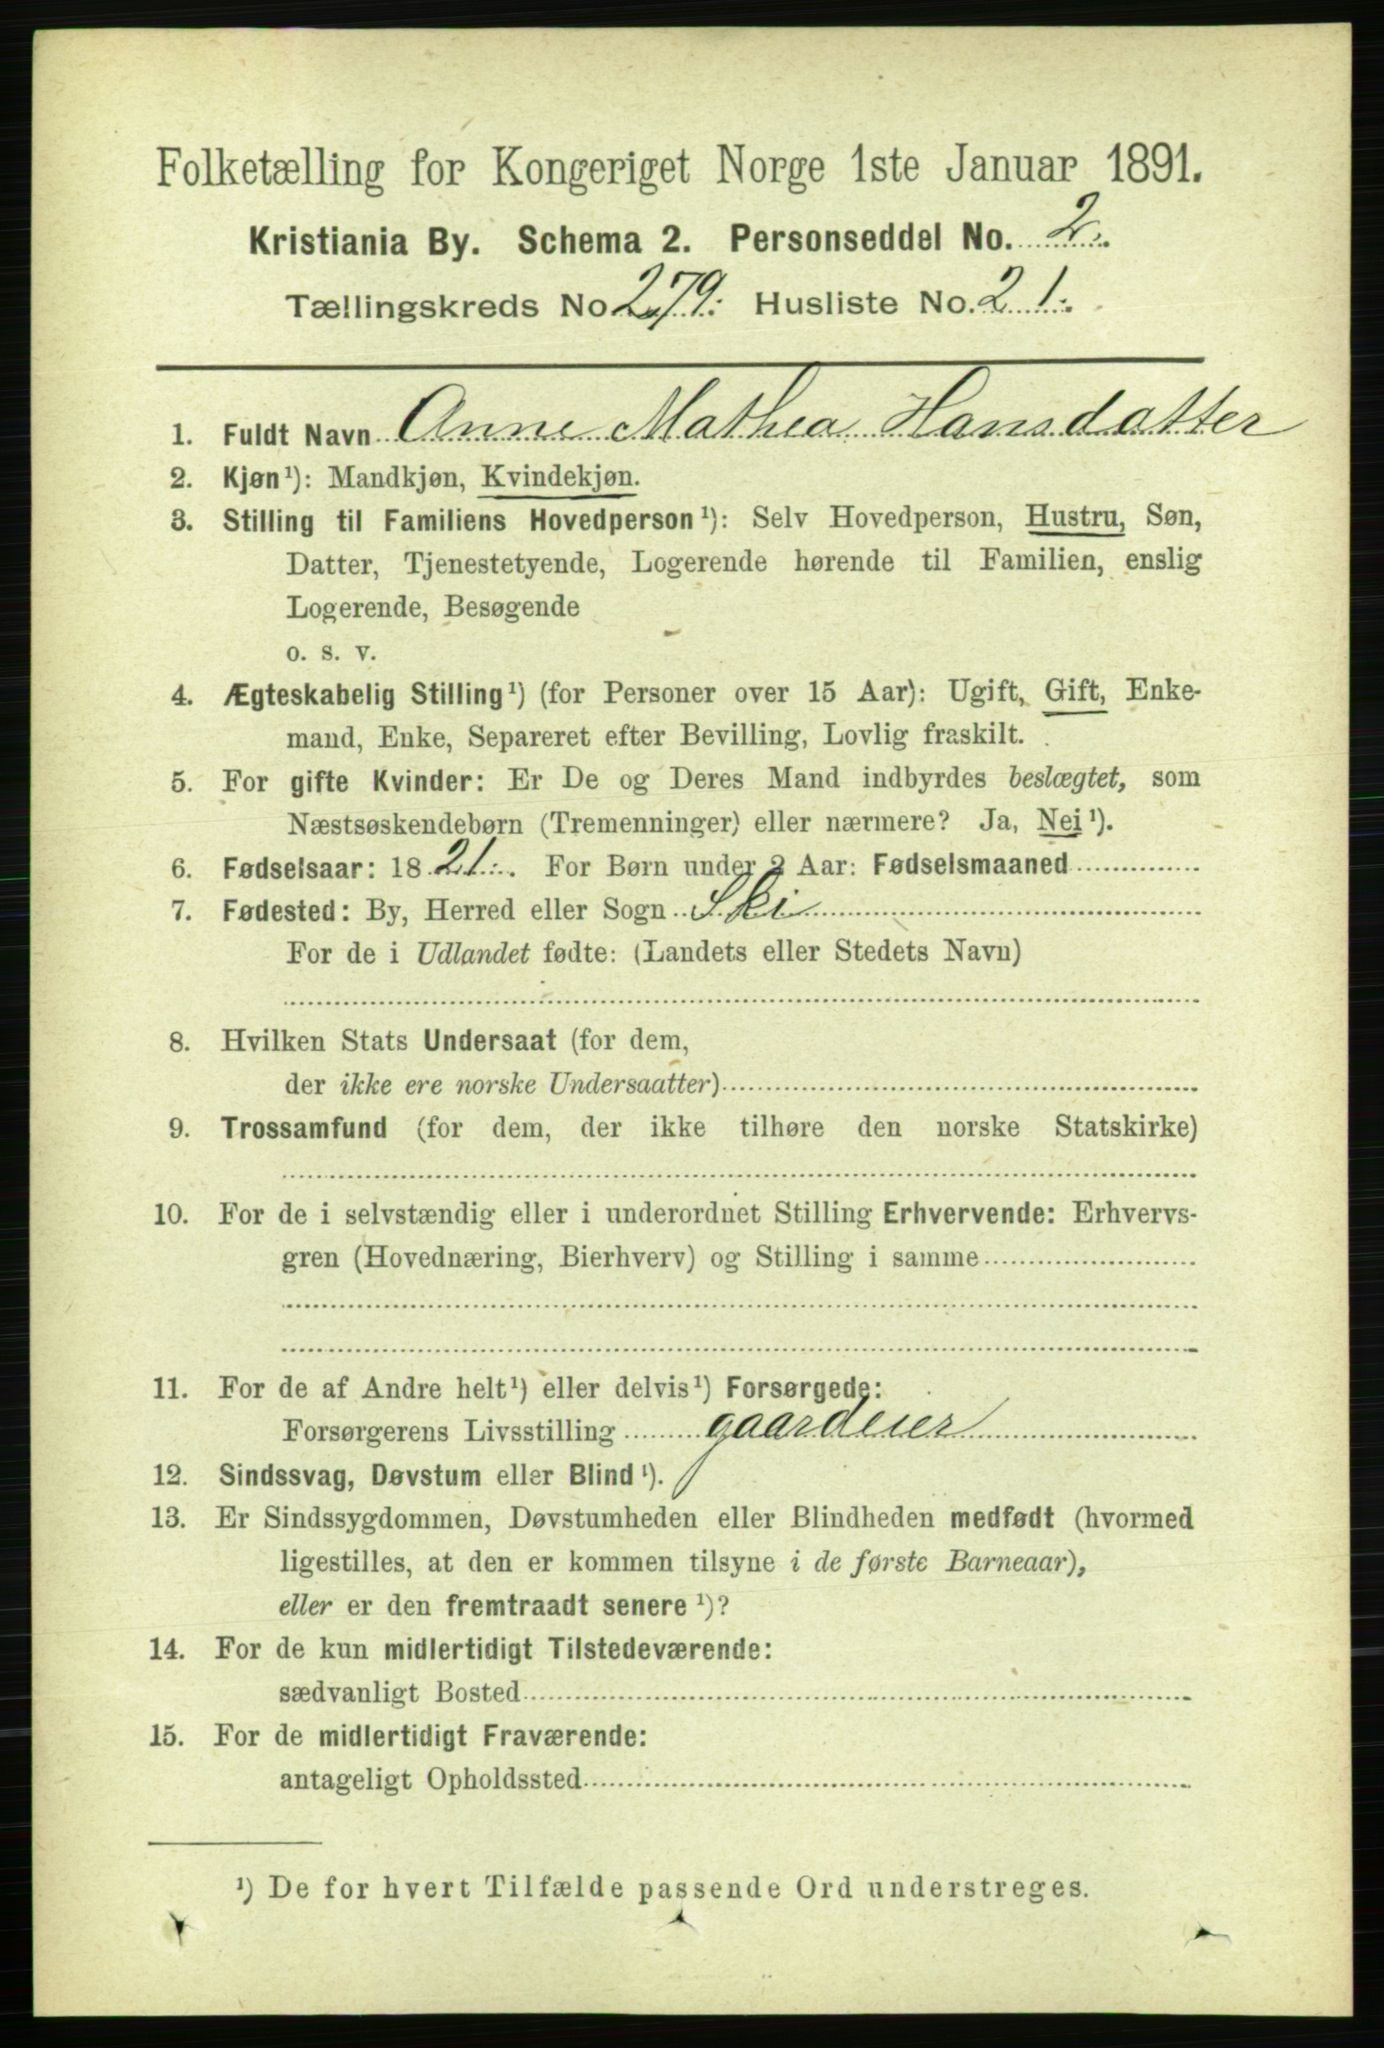 Folketælling for Kongeriget Norge 1ste Januar 1891.
Kristiania By. Schema 2. Personseddel No. 2.
Tællingskreds No 279. Husliste No. 21.
1. Fuldt Navn Anne Mathea Hansdatter
2. Kjøn¹): Mandkjøn, Kvindekjøn.
3. Stilling til Familiens Hovedperson¹): Selv Hovedperson, Hustru, Søn,
Datter, Tjenestetyende, Logerende hørende til Familien, enslig
Logerende, Besøgende
o. s. v.
4. Ægteskabelig Stilling¹) (for Personer over 15 Aar): Ugift, Gift, Enke-
mand, Enke, Separeret efter Bevilling, Lovlig fraskilt.
5. For gifte Kvinder: Er De og Deres Mand indbyrdes beslægtet, som
Næstsøskendebørn (Tremenninger) eller nærmere? Ja, Nei¹).
6. Fødselsaar: 1821. For Børn under 2 Aar: Fødselsmaaned
7. Fødested: By, Herred eller Sogn Ski
For de i Udlandet fødte: (Landets eller Stedets Navn)
8. Hvilken Stats Undersaat (for dem,
der ikke ere norske Undersaatter)
9. Trossamfund (for dem, der ikke tilhøre den norske Statskirke)
10. For de i selvstændig eller i underordnet Stilling Erhvervende: Erhvervs-
gren (Hovednæring, Bierhverv) og Stilling i samme
11. For de af Andre helt¹) eller delvis¹) Forsørgede:
Forsørgerens Livsstilling gaardeier
12. Sindssvag, Døvstum eller Blind¹).
13. Er Sindssygdommen, Døvstumheden eller Blindheden medfødt (hvormed
ligestilles, at den er kommen tilsyne i de første Barneaar),
eller er den fremtraadt senere¹)?
14. For de kun midlertidigt Tilstedeværende:
sædvanligt Bosted
15. For de midlertidigt Fraværende:
antageligt Opholdssted
¹) De for hvert Tilfælde passende Ord understreges.